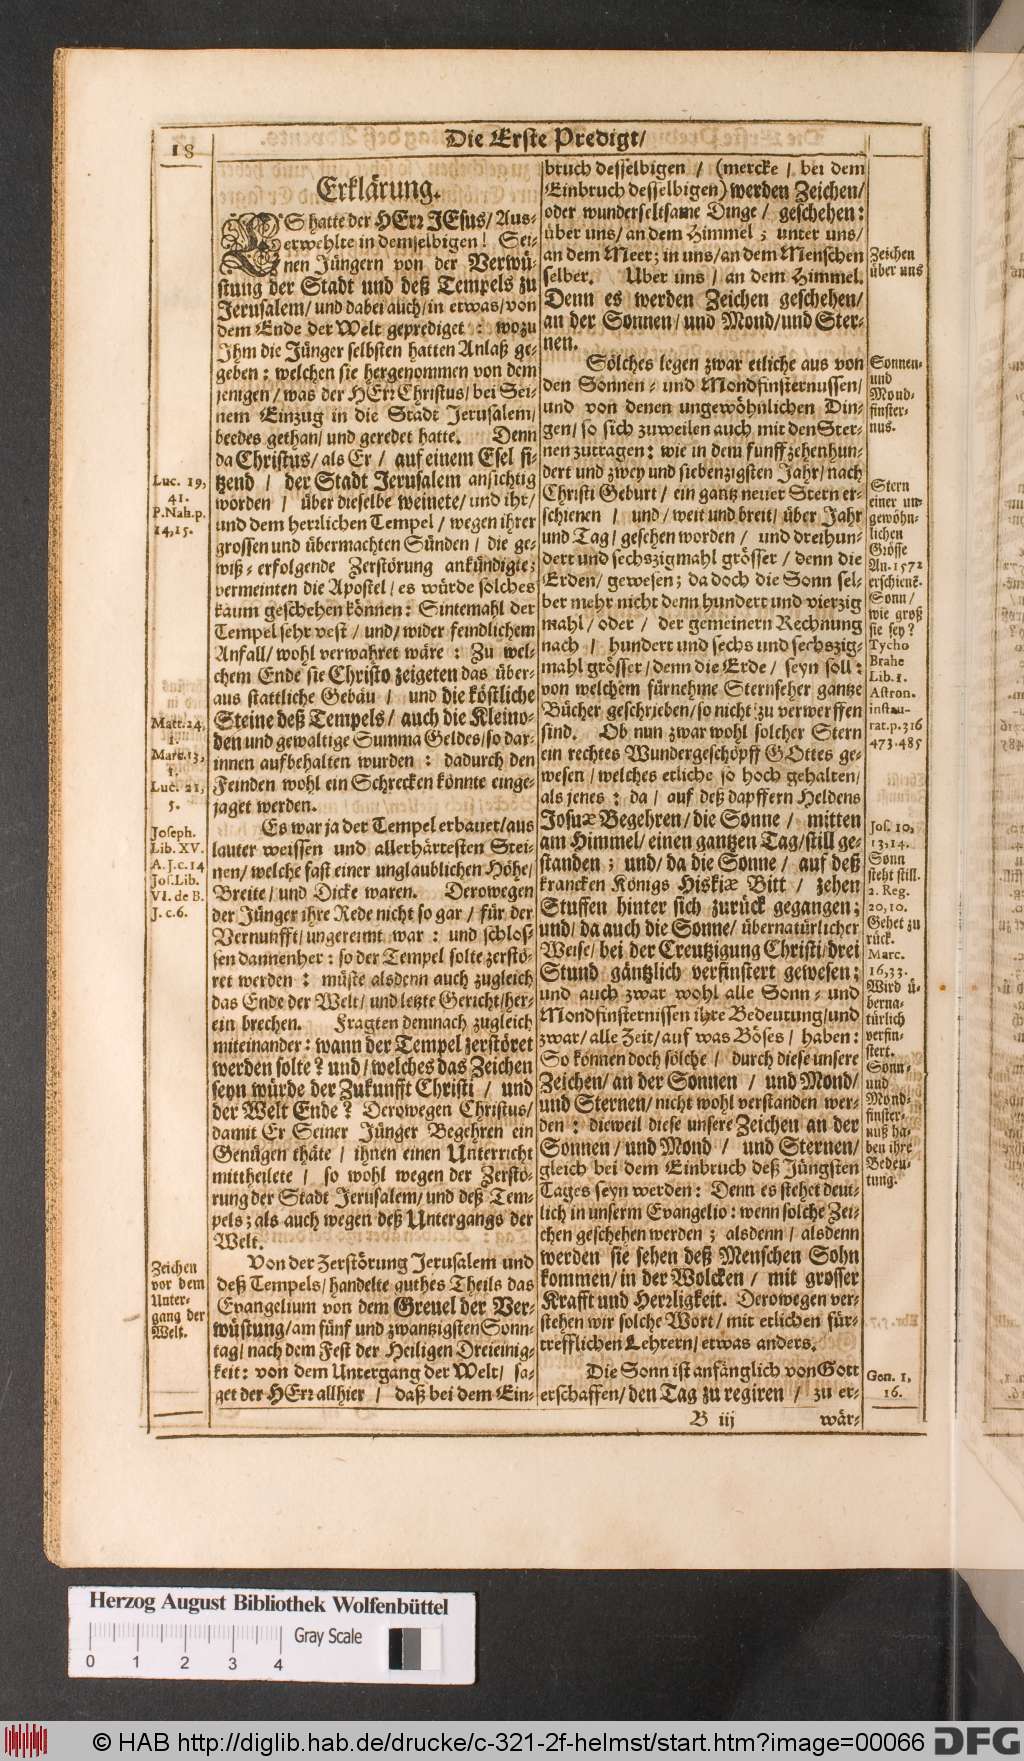 18
Die Erste Predigt/
Erklärung.
ES hatte der HErr JEsus/ Aus-
erwehlte in demselbigen! Sei-
nen Jüngern von der Verwü-
stung der Stadt und deß Tempels zu
Jerusalem/ und dabei auch/ in etwas/ von
dem Ende der Welt geprediget: wozu
Ihm die Jünger selbsten hatten Anlaß ge-
geben: welchen sie hergenommen von dem
jenigen/ was der HErr Christus/ bei Sei-
nem Einzug in die Stadt Jerusalem/
beedes gethan/ und geredet hatte. Denn
da Christus/ als Er/ auf einem Esel si-
tzend/ der Stadt Jerusalem ansichtig
worden/ über dieselbe weinete/ und ihr/
und dem herrlichen Tempel/ wegen ihrer
grossen und übermachten Sünden/ die ge-
wiß-erfolgende Zerstörung ankündigte;
vermeinten die Apostel/ es würde solches
kaum geschehen können: Sintemahl der
Tempel sehr vest/ und/ wider feindlichem
Anfall/ wohl verwahret wäre: Zu wel-
chem Ende sie Christo zeigeten das über-
aus stattliche Gebäu/ und die köstliche
Steine deß Tempels/ auch die Kleino-
den und gewaltige Summa Geldes/ so dar-
innen aufbehalten wurden: dadurch den
Feinden wohl ein Schrecken könnte einge-
jaget werden.
Es war ja der Tempel erbauet/ aus
lauter weissen und allerhärtesten Stei-
nen/ welche fast einer unglaublichen Höhe/
Breite/ und Dicke waren. Derowegen
der Jünger ihre Rede nicht so gar/ für der
Vernunfft/ ungereimt war: und schlos-
sen dannenher: so der Tempel solte zerstö-
ret werden: müste alsdenn auch zugleich
das Ende der Welt/ und letzte Gericht/ her-
ein brechen. Fragten demnach zugleich
miteinander: wann der Tempel zerstöret
werden solte? und/ welches das Zeichen
seyn würde der Zukunfft Christi/ und
der Welt Ende? Derowegen Christus/
damit Er Seiner Jünger Begehren ein
Genügen thäte/ ihnen einen Unterricht
mittheilete/ so wohl wegen der Zerstö-
rung der Stadt Jerusalem/ und deß Tem-
pels; als auch wegen deß Untergangs der
Welt.
Von der Zerstörung Jerusalem und
deß Tempels/ handelte guthes Theils das
Evangelium von dem Greuel der Ver-
wüstung/ am fünf und zwantzigsten Sonn-
tag/ nach dem Fest der Heiligen Dreieinig-
keit: von dem Untergang der Welt/ sa-
get der HErr allhier/ daß bei dem Ein-
Luc. 19,
41.
P. Nah. p.
14, 15.
Matt. 24,
1.
Marc. 13,
1.
Luc. 21,
5.
Joseph.
Lib. XV.
A. J. c. 14
Jos. Lib.
VI. de B.
J. c. 6.
Zeichen
vor dem
Unter-
gang der
Welt.
bruch desselbigen/ (mercke/ bei dem
Einbruch desselbigen) werden Zeichen/
oder wunderseltsame Dinge/ geschehen:
über uns/ an dem Himmel; unter uns/
an dem Meer; in uns/ an dem Menschen
selber. Uber uns/ an dem Himmel.
Denn es werden Zeichen geschehen/
an der Sonnen/ und Mond/ und Ster-
nen.
Sölches legen zwar etliche aus von
den Sonnen- und Mondfinsternussen/
und von denen ungewöhnlichen Din-
gen/ so sich zuweilen auch mit den Ster-
nen zutragen: wie in dem funffzehenhun-
dert und zwey und siebenzigsten Jahr/ nach
Christi Geburt/ ein gantz neuer Stern er-
schienen/ und/ weit und breit/ über Jahr
und Tag/ gesehen worden/ und dreihun-
dert und sechszigmahl grösser/ denn die
Erden/ gewesen; da doch die Sonn sel-
ber mehr nicht denn hundert und vierzig
mahl/ oder/ der gemeinern Rechnung
nach/ hundert und sechs und sechszig-
mahl grösser/ denn die Erde/ seyn soll:
von welchem fürnehme Sternseher gantze
Bücher geschrieben/ so nicht zu verwerffen
sind. Ob nun zwar wohl solcher Stern
ein rechtes Wundergeschöpff GOttes ge-
wesen/ welches etliche so hoch gehalten/
als jenes: da/ auf deß dapffern Heldens
Josuæ Begehren/ die Sonne/ mitten
am Himmel/ einen gantzen Tag/ still ge-
standen; und/ da die Sonne/ auf deß
krancken Königs Hiskiæ Bitt/ zehen
Stuffen hinter sich zurück gegangen;
und/ da auch die Sonne/ übernatürlicher
Weise/ bei der Creutzigung Christi/ drei
Stund gäntzlich verfinstert gewesen;
und auch zwar wohl alle Sonn- und
Mondfinsternissen ihre Bedeutung/ und
zwar/ alle Zeit/ auf was Böses/ haben:
So können doch sölche/ durch diese unsere
Zeichen/ an der Sonnen/ und Mond/
und Sternen/ nicht wohl verstanden wer-
den: dieweil diese unsere Zeichen an der
Sonnen/ und Mond/ und Sternen/
gleich bei dem Einbruch deß Jüngsten
Tages seyn werden: Denn es stehet deut-
lich in unserm Evangelio: wenn solche Zei-
chen geschehen werden; alsdenn/ alsdenn
werden sie sehen deß Menschen Sohn
kommen/ in der Wolcken/ mit grosser
Krafft und Herrligkeit. Derowegen ver-
stehen wir solche Wort/ mit etlichen für-
trefflichen Lehrern/ etwas anders.
Die Sonn ist anfänglich von Gott
erschaffen/ den Tag zu regiren/ zu er-
B iij
wär-
Zeichen
über uns
Sonnen-
und
Mond-
finster-
nus.
Stern
einer un-
gewöhn-
lichen
Grösse
An. 1572
erschienē.
Sonn/
wie groß
sie sey?
Tycho
Brahe
Lib. 1.
Astron.
instau-
rat. p. 316
473. 485
Jos. 10,
13, 14.
Sonn
steht still.
2. Reg.
20, 10.
Gehet zu
rück.
Marc.
16, 33.
Wird ü-
berna-
türlich
verfin-
stert.
Sonn-
und
Mond-
finster-
nuß ha-
ben ihre
Bedeu-
tung.
Gen. 1,
16.
Herzog August Bibliothek Wolfenbüttel
Gray Scale
0 1 2 3 4
© HAB http://diglib.hab.de/drucke/c-321-2f-helmst/start.htm?image=00066
DFG